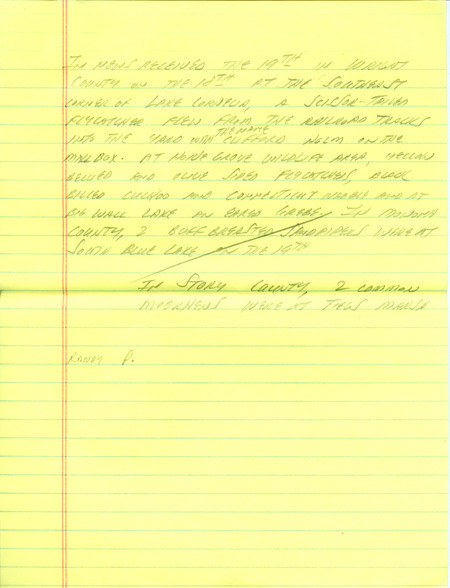 IN NEWS RECEIVED THE 19TH IN WRIGHT
COUNTY ON THE 18TH AT THE SOUTHEAST
CORNER OF LAKE CORNELIA, A SCISSOR-TAILED
FLYCATCHER FLEW FROM THE RAILROAD TRACKS
INTO THE YARD WITH THE NAME CLIFFORD ON THE
MAILBOX. AT GROVE WILDLIFE AREA, YELLOW
BELLIED AND OLIVE SIDED FLYCATCHERS, BLACK
BILLED CUCKOO AND CONNECTICUT AND AT
BIG WALL LAKE AN EARED GREBE. IN MONONA
COUNTY, 2 BUFF BREASTED SANDPIPERS WERE AT
SOUTH BLUE LAKE ON THE 19TH
IN STORY COUNTY, 2 COMMON
MOORHENS WERE AT MARSH
RANDY P.